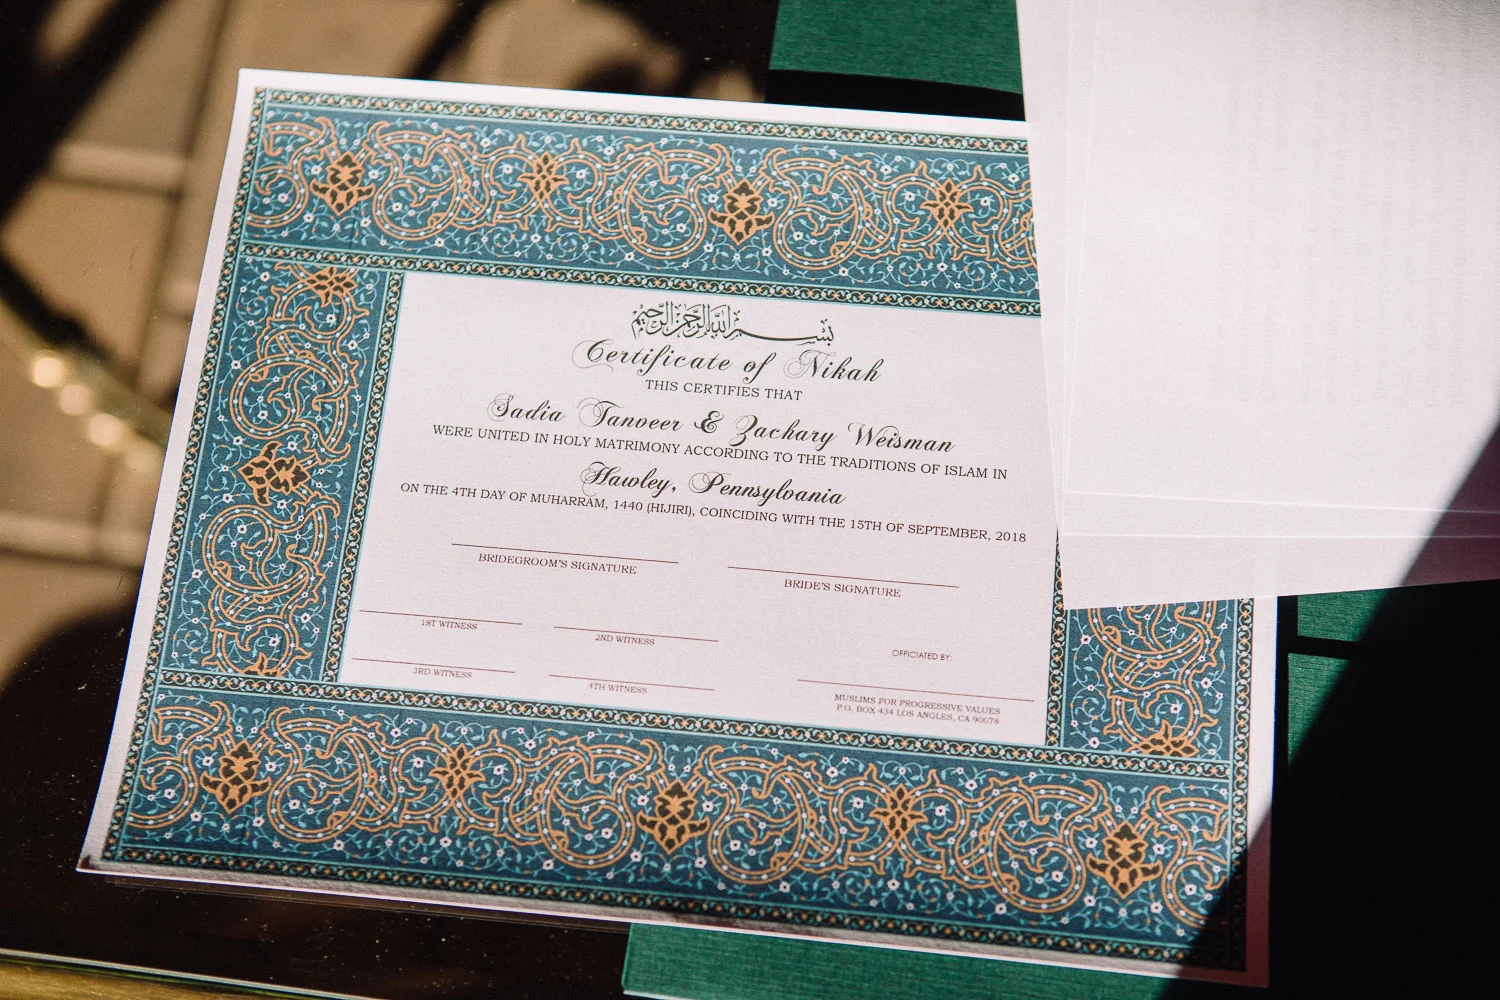 بسم الله الرحمن الرحيم
Certificate of Nikah
THIS CERTIFIES THAT
Sadia Tanveer & Zachary Weisman
WERE UNITED IN HOLY MATRIMONY ACCORDING TO THE TRADITIONS OF ISLAM IN
Hawley, Pennsylvania
ON THE 4TH DAY OF MUHARRAM, 1440 (HIJIRI), COINCIDING WITH THE 15TH OF SEPTEMBER, 2018
BRIDEGROOM'S SIGNATURE
BRIDE'S SIGNATURE
1ST WITNESS
2ND WITNESS
3RD WITNESS
4TH WITNESS
OFFICIATED BY:
MUSLIMS FOR PROGRESSIVE VALUES
P.O. BOX 434 LOS ANGLES, CA 90078